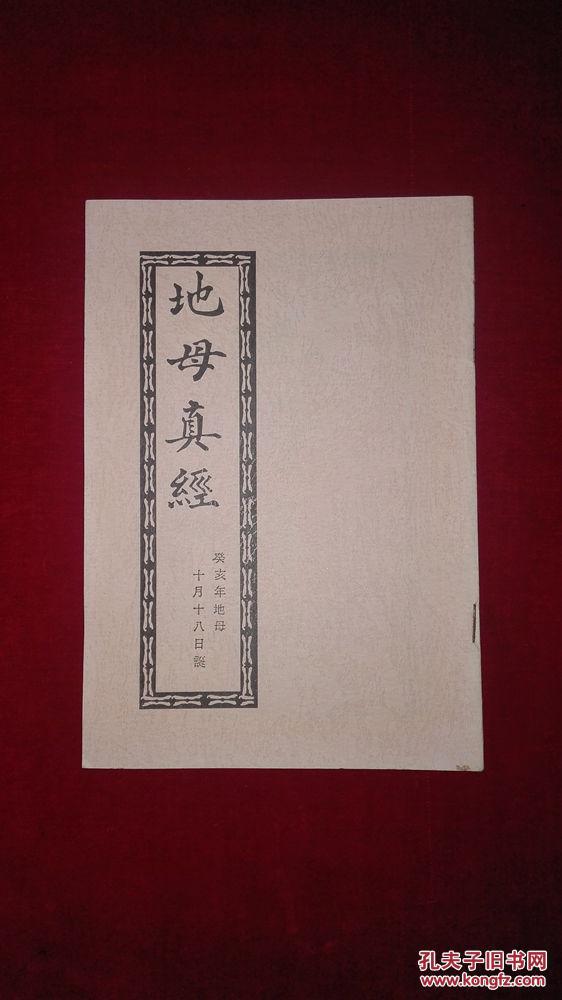 地母真經
癸亥年地母
十月十八日誕
孔夫子旧书网
www.kongfz.com